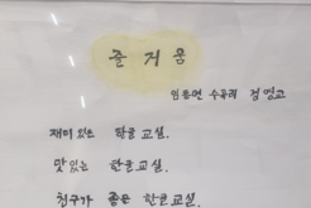 즐거움
임동면 수곡리 정영교
재미있는 한글교실.
맛있는 한글교실.
친구가 좋은 한글교실.